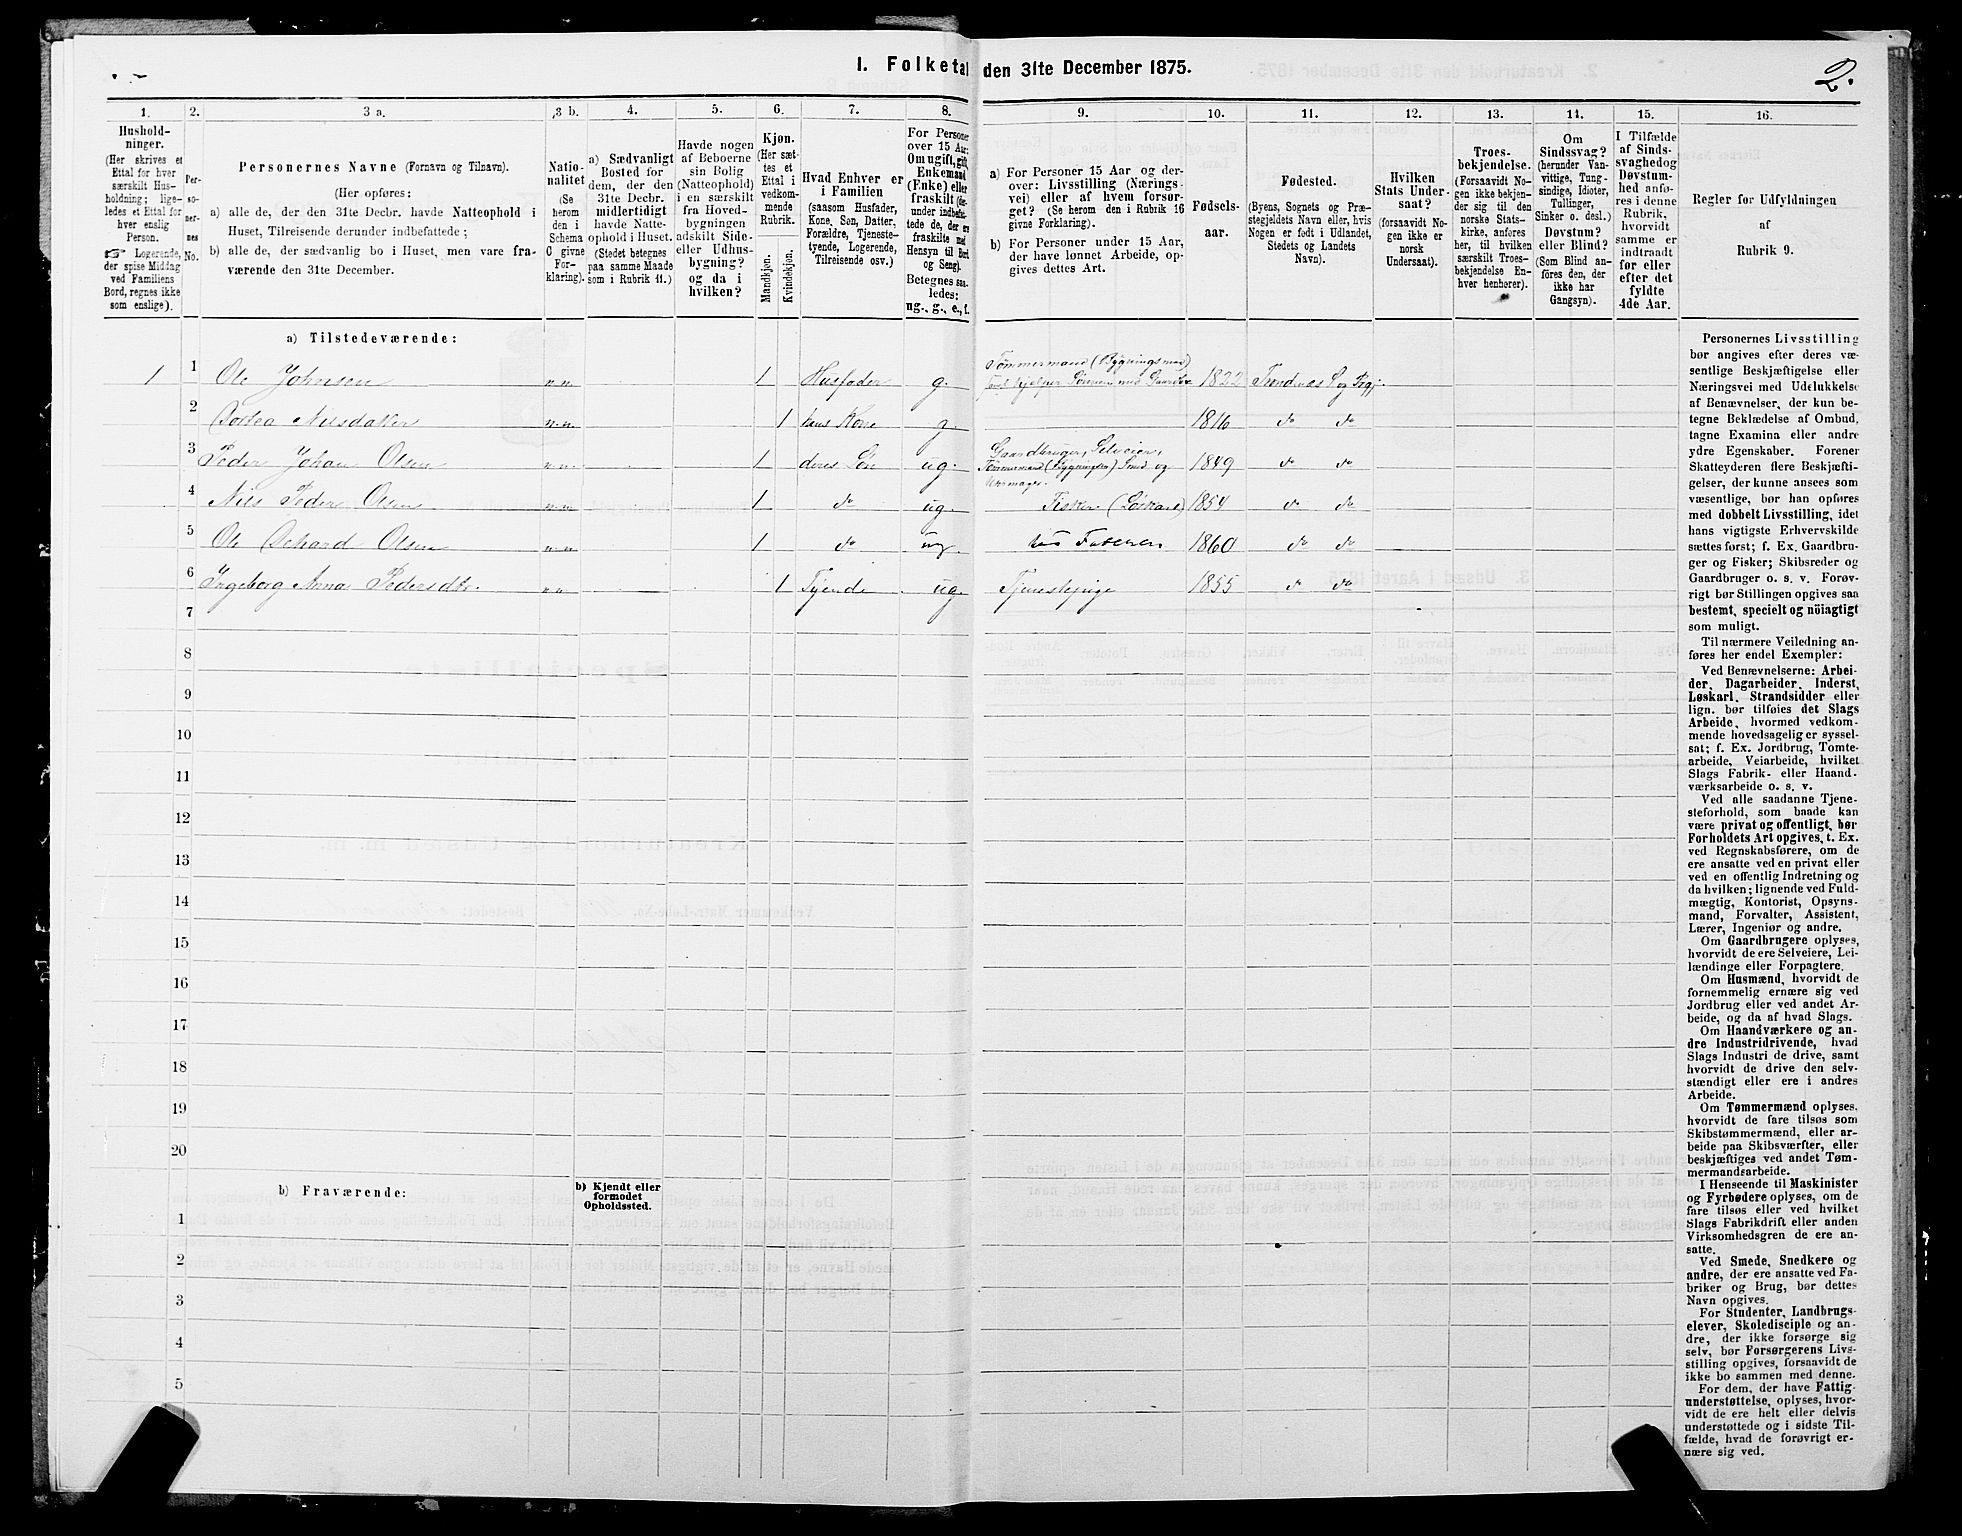 I. Folketal den 31te December 1875.
2.
1. 2. 3 a. 3 b. 4. 5. 6. 7. 8. 9. 10. 11. 12. 13. 14. 15. 16.
Hushold-
ninger.
(Her skrives et
Ettal for hver
særskilt Hus-
holdning; lige-
ledes et Ettal for
hver enslig
Person.
☞ Logerende,
der spise Middag
ved Familiens
Bord, regnes ikke
som enslige).
Per-
so-
ner-
nes
No.
Personernes Navne (Fornavn og Tilnavn).
(Her opføres:
a) alle de, der den 31te Decbr. havde Natteophold i
Huset, Tilreisende derunder indbefattede;
b) alle de, der sædvanlig bo i Huset, men vare fra-
værende den 31te December.
Natio-
nalitet
(Se
herom
den i
Schema
C givne
For-
klaring).
a) Sædvanligt
Bosted for
dem, der den
31te Decbr.
midlertidigt
havde Natte-
ophold i Huset.
(Stedet betegnes
paa samme Maade
som i Rubrik 11.)
Havde nogen
af Beboerne
sin Bolig
(Natteophold)
i en særskilt
fra Hoved-
bygningen
adskilt Side-
eller Udhus-
bygning?
og da i
hvilken?
Kjøn.
(Her sæt-
tes et
Ettal i
vedkom-
mende
Rubrik.
Mandkjøn.
Kvindekjøn.
Hvad Enhver er
i Familien
(saasom Husfader,
Kone, Søn, Datter,
Forældre, Tjeneste-
tyende, Logerende,
Tilreisende osv.)
For Personer
over 15 Aar:
Om ugift, gift,
Enkemand
(Enke) eller
fraskilt (der-
under indbefat-
tede de, der ere
fraskilte med
Hensyn til Bord
og Seng).
Betegnes saa-
ledes:
ug., g., e., f.
a) For Personer 15 Aar og der-
over: Livsstilling (Nærings-
vei) eller af hvem forsør-
get? (Se herom den i Rubrik 16
givne Forklaring).
b) For Personer under 15 Aar,
der have lønnet Arbeide, op-
gives dettes Art.
Fødsels-
aar.
Fødested.
(Byens, Sognets og Præ-
stegjeldets Navn eller, hvis
Nogen er født i Udlandet,
Stedets og Landets
Navn).
Hvilken
Stats Under-
saat?
(forsaavidt No-
gen ikke er
norsk
Undersaat).
Troes-
bekjendelse.
(Forsaavidt No-
gen ikke bekjen-
der sig til den
norske Stats-
kirke, anføres
her, til hvilken
særskilt Troes-
bekjendelse En-
hver henhører).
Om
Sindssvag?
(herunder Van-
vittige, Tung-
sindige, Idioter,
Tullinger,
Sinker o. desl.)
Døvstum?
eller Blind?
(Som Blind an-
føres den, der
ikke har
Gangsyn).
I Tilfælde
af Sinds-
svaghed og
Døvstum-
hed anfø-
res i denne
Rubrik,
hvorvidt
samme er
indtraadt
før eller
efter det
fyldte
4de Aar.
Regler for Udfyldningen
af
Rubrik 9.
a) Tilstedeværende:
Tømmermand (Bygningsmd)
1 1 Ole Johnsen n.n. 1 Husfader g. samt hjelper Sønnen med Gaardbr 1822 Trondnæs S og Prgj.
2 Dortea Nilsdatter n.n. 1 hans Kone g. 1816 do do
Gaardbruger, Selveier,
3 Peder Johan Olsen n.n. 1 deres Søn ug. Tømmermand (Bygnings) Smed og 1849 do do
Urmager.
4 Nils Peder Olsen n.n. 1 do ug. Fisker (Løskarl) 1854 do do
5 Ole Olsen n.n. 1 do ug. hos Faderen 1860 do do
6 Ingeborg Anna Pedersdtr. n.n. 1 Tyende ug. Tjenestepige 1855 do do
7
8
9
10
11
12
13
14
15
16
17
18
19
20
b) Fraværende:
b) Kjendt eller
formodet
Opholdssted.
1
2
3
4
5
Personernes Livsstilling
bør angives efter deres væ-
sentlige Beskjæftigelse eller
Næringsvei med Udelukkelse
af Benævnelser, der kun be-
tegne Beklædelse af Ombud,
tagne Examina eller andre
ydre Egenskaber. Forener
Skatteyderen flere Beskjæfti-
gelser, der kunne ansees som
væsentlige, bør han opføres
med dobbelt Livsstilling, idet
hans vigtigste Erhvervskilde
sættes først; f. Ex. Gaardbru-
ger og Fisker; Skibsreder og
Gaardbruger o. s. v. Forøv-
rigt bør Stillingen opgives saa
bestemt, specielt og nøiagtigt
som muligt.
Til nærmere Veiledning an-
føres her endel Exempler:
Ved Benævnelserne: Arbei-
der, Dagarbeider, Inderst,
Løskarl, Strandsidder eller
lign. bør tilføies det Slags
Arbeide, hvormed vedkom-
mende hovedsagelig er syssel-
sat; f. Ex. Jordbrug, Tomte-
arbeide, Veiarbeide, hvilket
Slags Fabrik- eller Haand-
værksarbeide o. s. v.
Ved alle saadanne Tjene-
steforhold, som baade kan
være privat og offentligt, bør
Forholdets Art opgives, t. Ex.
ved Regnskabsførere, om de
ere ansatte ved en privat eller
ved en offentlig Indretning og
da hvilken; lignende ved Fuld-
mægtig, Kontorist, Opsyns-
mand, Forvalter, Assistent,
Lærer, Ingeniør og andre.
Om Gaardbrugere oplyses,
hvorvidt de ere Selveiere, Lei-
lændinge eller Forpagtere.
Om Husmænd, hvorvidt de
fornemmelig ernære sig ved
Jordbrug eller ved andet Ar-
beide, og da af hvad Slags.
Om Haandværkere og an-
dre Industridrivende, hvad
Slags Industri de drive, samt
hvorvidt de drive den selv-
stændigt eller ere i andres
Arbeide.
Om Tømmermænd oplyses,
hvorvidt de fare tilsøs som
Skibstømmermænd, eller ar-
beide paa Skibsværfter, eller
beskjæftiges ved andet Tøm-
mermandsarbeide.
I Henseende til Maskinister
og Fyrbødere oplyses, om de
fare tilsøs eller ved hvilket
Slags Fabrikdrift eller anden
Virksomhedsgren de ere an-
satte.
Ved Smede, Snedkere og
andre, der ere ansatte ved Fa-
briker og Brug, bør dettes
Navn opgives.
For Studenter, Landbrugs-
elever, Skoledisciple og an-
dre, der ikke forsørge sig
selv, bør Forsørgerens Livs-
stilling opgives, forsaavidt de
ikke bo sammen med denne.
For dem, der have Fattig-
understøttelse, oplyses, hvor-
vidt de ere helt eller delvis
understøttede og i sidste Til-
fælde, hvad de forøvrigt er-
nære sig ved.